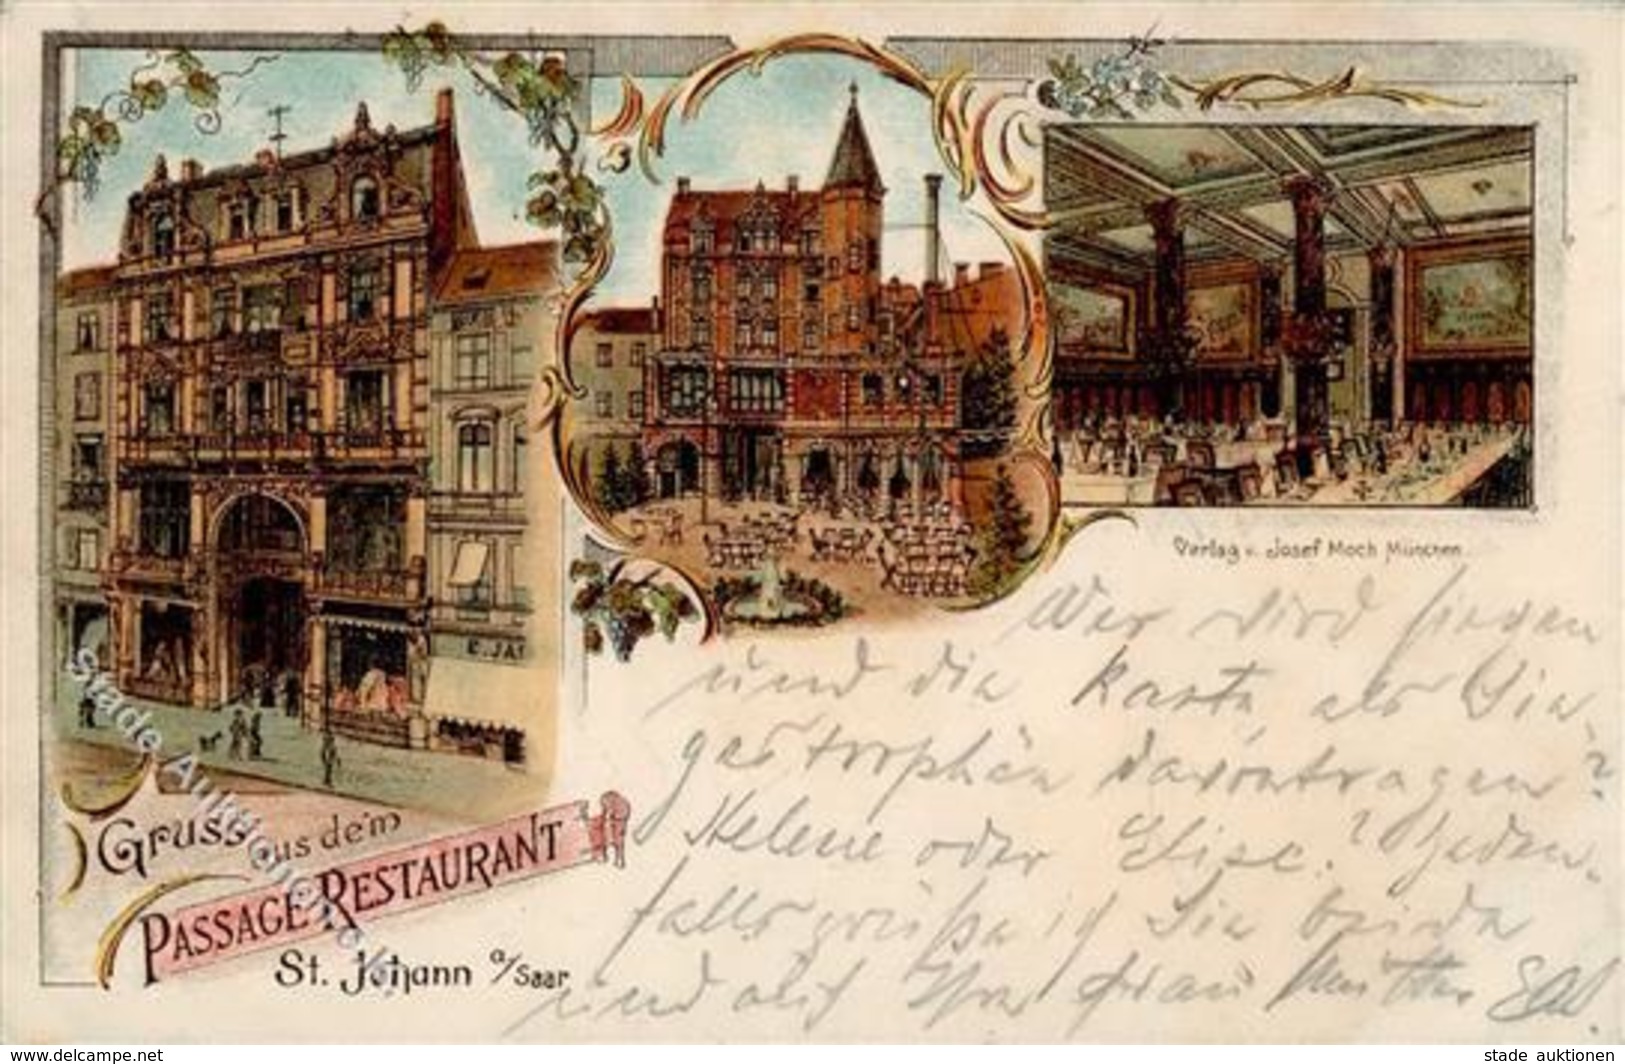 E. JA
Verlag v. Josef Moch München.
Wer wird siegen
und die Karte als Sie
gastrophän davontragen?
Helene oder Elise? Jeden-
falls grüße ich Sie beide
und also Ihre Frau Mutter
Gruss aus dem
PASSAGE-RESTAURANT
St. Johann a/Saar
Stade Auktionen
www.delcampe.net
stade auktionen